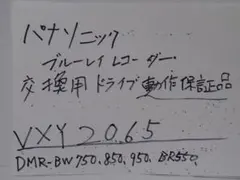 パナソニック
ブルーレイレコーダー.
交換用ドライブ動作保証品
VXY2065
DMR-BW750.850.950.BR550.